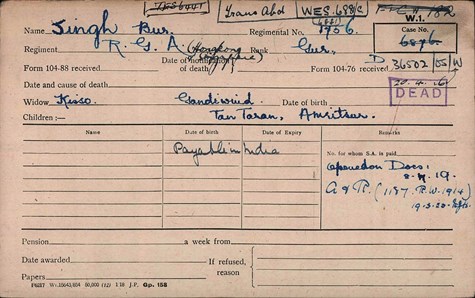 Trans Abd WES.688/C
W.1.
Name Singh Bur. Regimental No. 1756. Case No. 6876
Regiment R. G. A. (Hongkong Rank Gnr.
Form 104-88 received Date of notification of death Form 104-76 received D 36502/55/W
Date and cause of death
DEAD
Widow Kisso. Gandiwind Date of birth
Children:— Tarn Taran, Amritsar.
Name Date of birth Date of Expiry Remarks
Payable in India
No. for whom S.A. is paid
opened on Docs:
2.4.19.
A & R. (1187. R.W. 1914)
19.3.20.
Pension a week from
Date awarded If refused, reason
Papers
P4317 Wt. 15643/854 50,000 (12) 3.18 J.P. Gp. 158